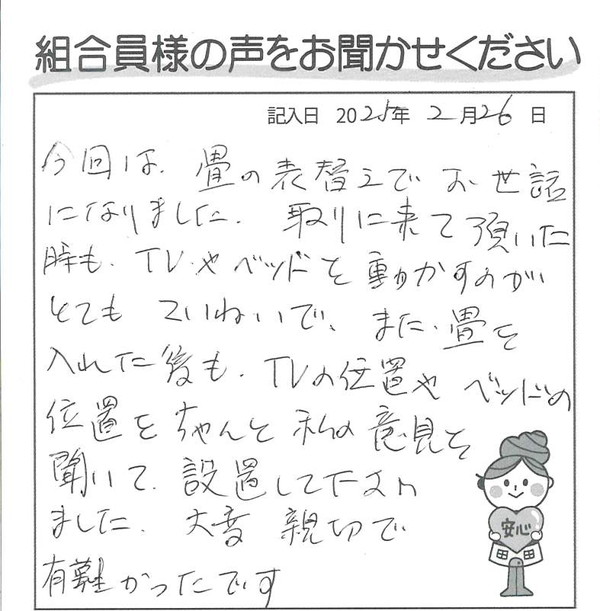 組合員様の声をお聞かせください
記入日 2025年 2月26日
今回は、畳の表替えでお世話
になりました。取りに来て頂いた
時も、TVやベッドを動かすのが
とても ていねいで、また、畳を
入れた後も、TVの位置や ベッドの
位置をちゃんと 私の意見を
聞いて、設置して下さり
ました。大変 親切で
有難かったです
安心